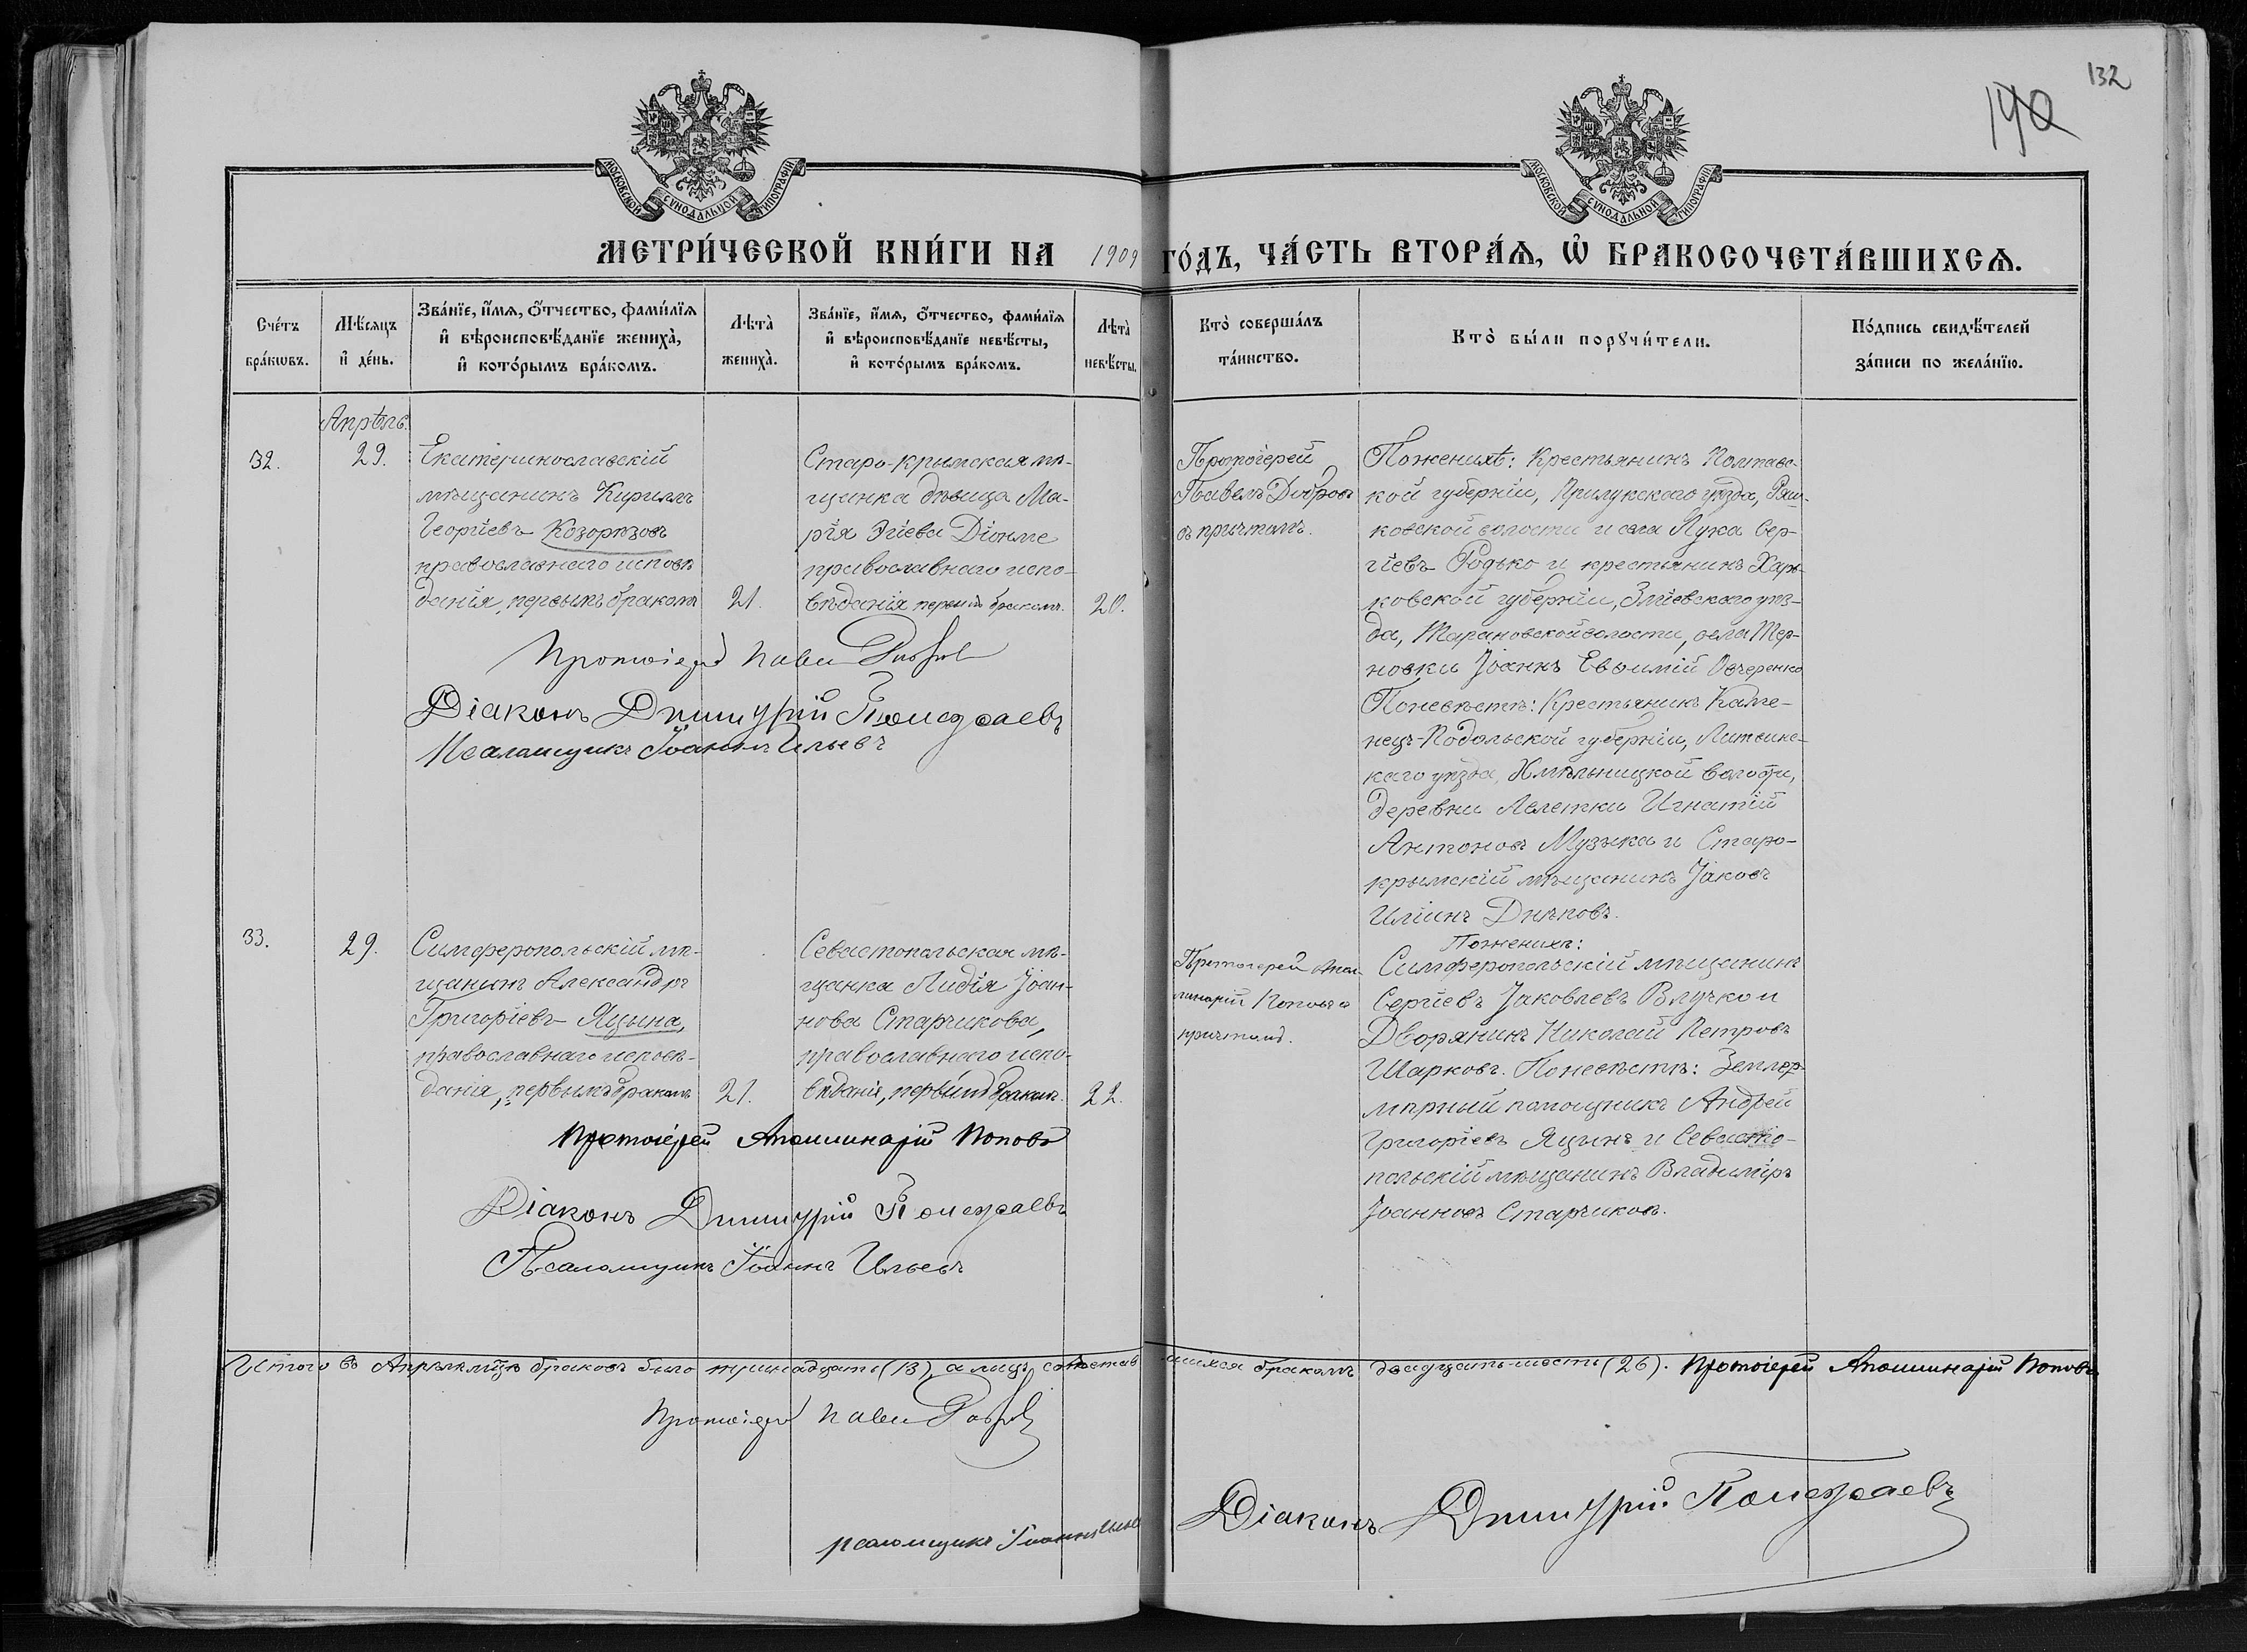 132
190
МОСКОВСКОЙ СѴНОДАЛЬНОЙ ТИПОГРАФІИ
МОСКОВСКОЙ СѴНОДАЛЬНОЙ ТИПОГРАФІИ
МЕТРИ́ЧЕСКОЙ КНИ́ГИ НА 1909 ГО́ДЪ, ЧА́СТЬ ВТОРА́Ѧ, Ѽ БРАКОСОЧЕТА́ВШИХСѦ.
Сче́тъ
бра́кѡвъ.
Мѣ́сяцъ
и҆ де́нь.
Зва́нїе, и҆́мѧ, ѻ҆́тчество, фами́лїѧ
и҆ вѣроисповѣ́данїе жениха̀,
и҆ кото́рымъ бра́комъ.
Лѣта̀
жениха̀.
Зва́нїе, и҆́мѧ, ѻ҆́тчество, фами́лїѧ
и҆ вѣроисповѣ́данїе невѣ́сты,
и҆ кото́рымъ бра́комъ.
Лѣта̀
невѣ́сты.
Кто̀ соверша́лъ
та́инство.
Кто̀ бы́ли порꙋчи́тели.
По́дпись свидѣ́телей
за́писи по жела́нїю.
Апрѣль.
32.
29.
Екатеринославскій
мѣщанинъ Кирилъ
Георгіевъ Козорѣзовъ
православнаго исповѣ
данія, первымъ бракомъ
21.
Старо-крымская мѣ-
щанка дѣвица Ма-
рія Эліева Діонме
православнаго испо-
вѣданія первымъ бракомъ.
20.
Протоіерей
Павелъ Добровъ
съ причтомъ.
По женихѣ: Крестьянинъ Полтавс-
кой губерніи, Прилукскаго уѣзда, Ряш-
ковской волости и села Лука Сер-
гіевъ Родько и крестьянинъ Харь-
ковской губерніи, Зміевскаго уѣз-
да, Тарановской волости, села Тер-
новки Іоаннъ Евѳимій Овчеренко
По невѣстѣ: Крестьянинъ Каме-
нецъ-Подольской губерніи, Литинс-
каго уѣзда, Хмѣльницкой волости,
деревни Лелетки Игнатій
Антоновъ Музыка и Старо-
крымскій мѣщанинъ Іаковъ
Иліинъ Дикповъ.
Протоіерей Павелъ Добровъ
Діаконъ Димитрій
Псаломщикъ Іоаннъ Ильевъ
33.
29.
Симферопольскій мѣ-
щанинъ Александръ
Григоріевъ Яцына,
православнаго исповѣ-
данія, первымъ бракомъ
21.
Севастопольская мѣ-
щанка Лидія Іоан-
нова Старчикова,
православнаго испо-
вѣданія, первымъ бракомъ.
22.
Протоіерей Апол-
линарій Поповъ съ
причтомъ.
По женихѣ:
Симферопольскій мѣщанинъ
Сергіевъ Іаковлевъ Влучко и
Дворянинъ Николай Петровъ
Шарковъ. По невѣстѣ: Землер-
мѣрный помощникъ Андрей
Григоріевъ Яцынъ и Севасто-
польскій мѣщанинъ Владиміръ
Іоанновъ Старчиковъ.
Протоіерей Аполлинарій Поповъ
Діаконъ Димитрій
Псаломщикъ Іоаннъ Ильевъ
Итого въ Апрѣлѣ мѣсяцѣ браковъ было тринадцать (13), а лицъ, сочетав
шихся бракомъ двадцать-шесть (26). Протоіерей Аполлинарій Поповъ
Протоіерей Павелъ Добровъ
Діаконъ Димитрій
псаломщикъ Іоаннъ Ильевъ